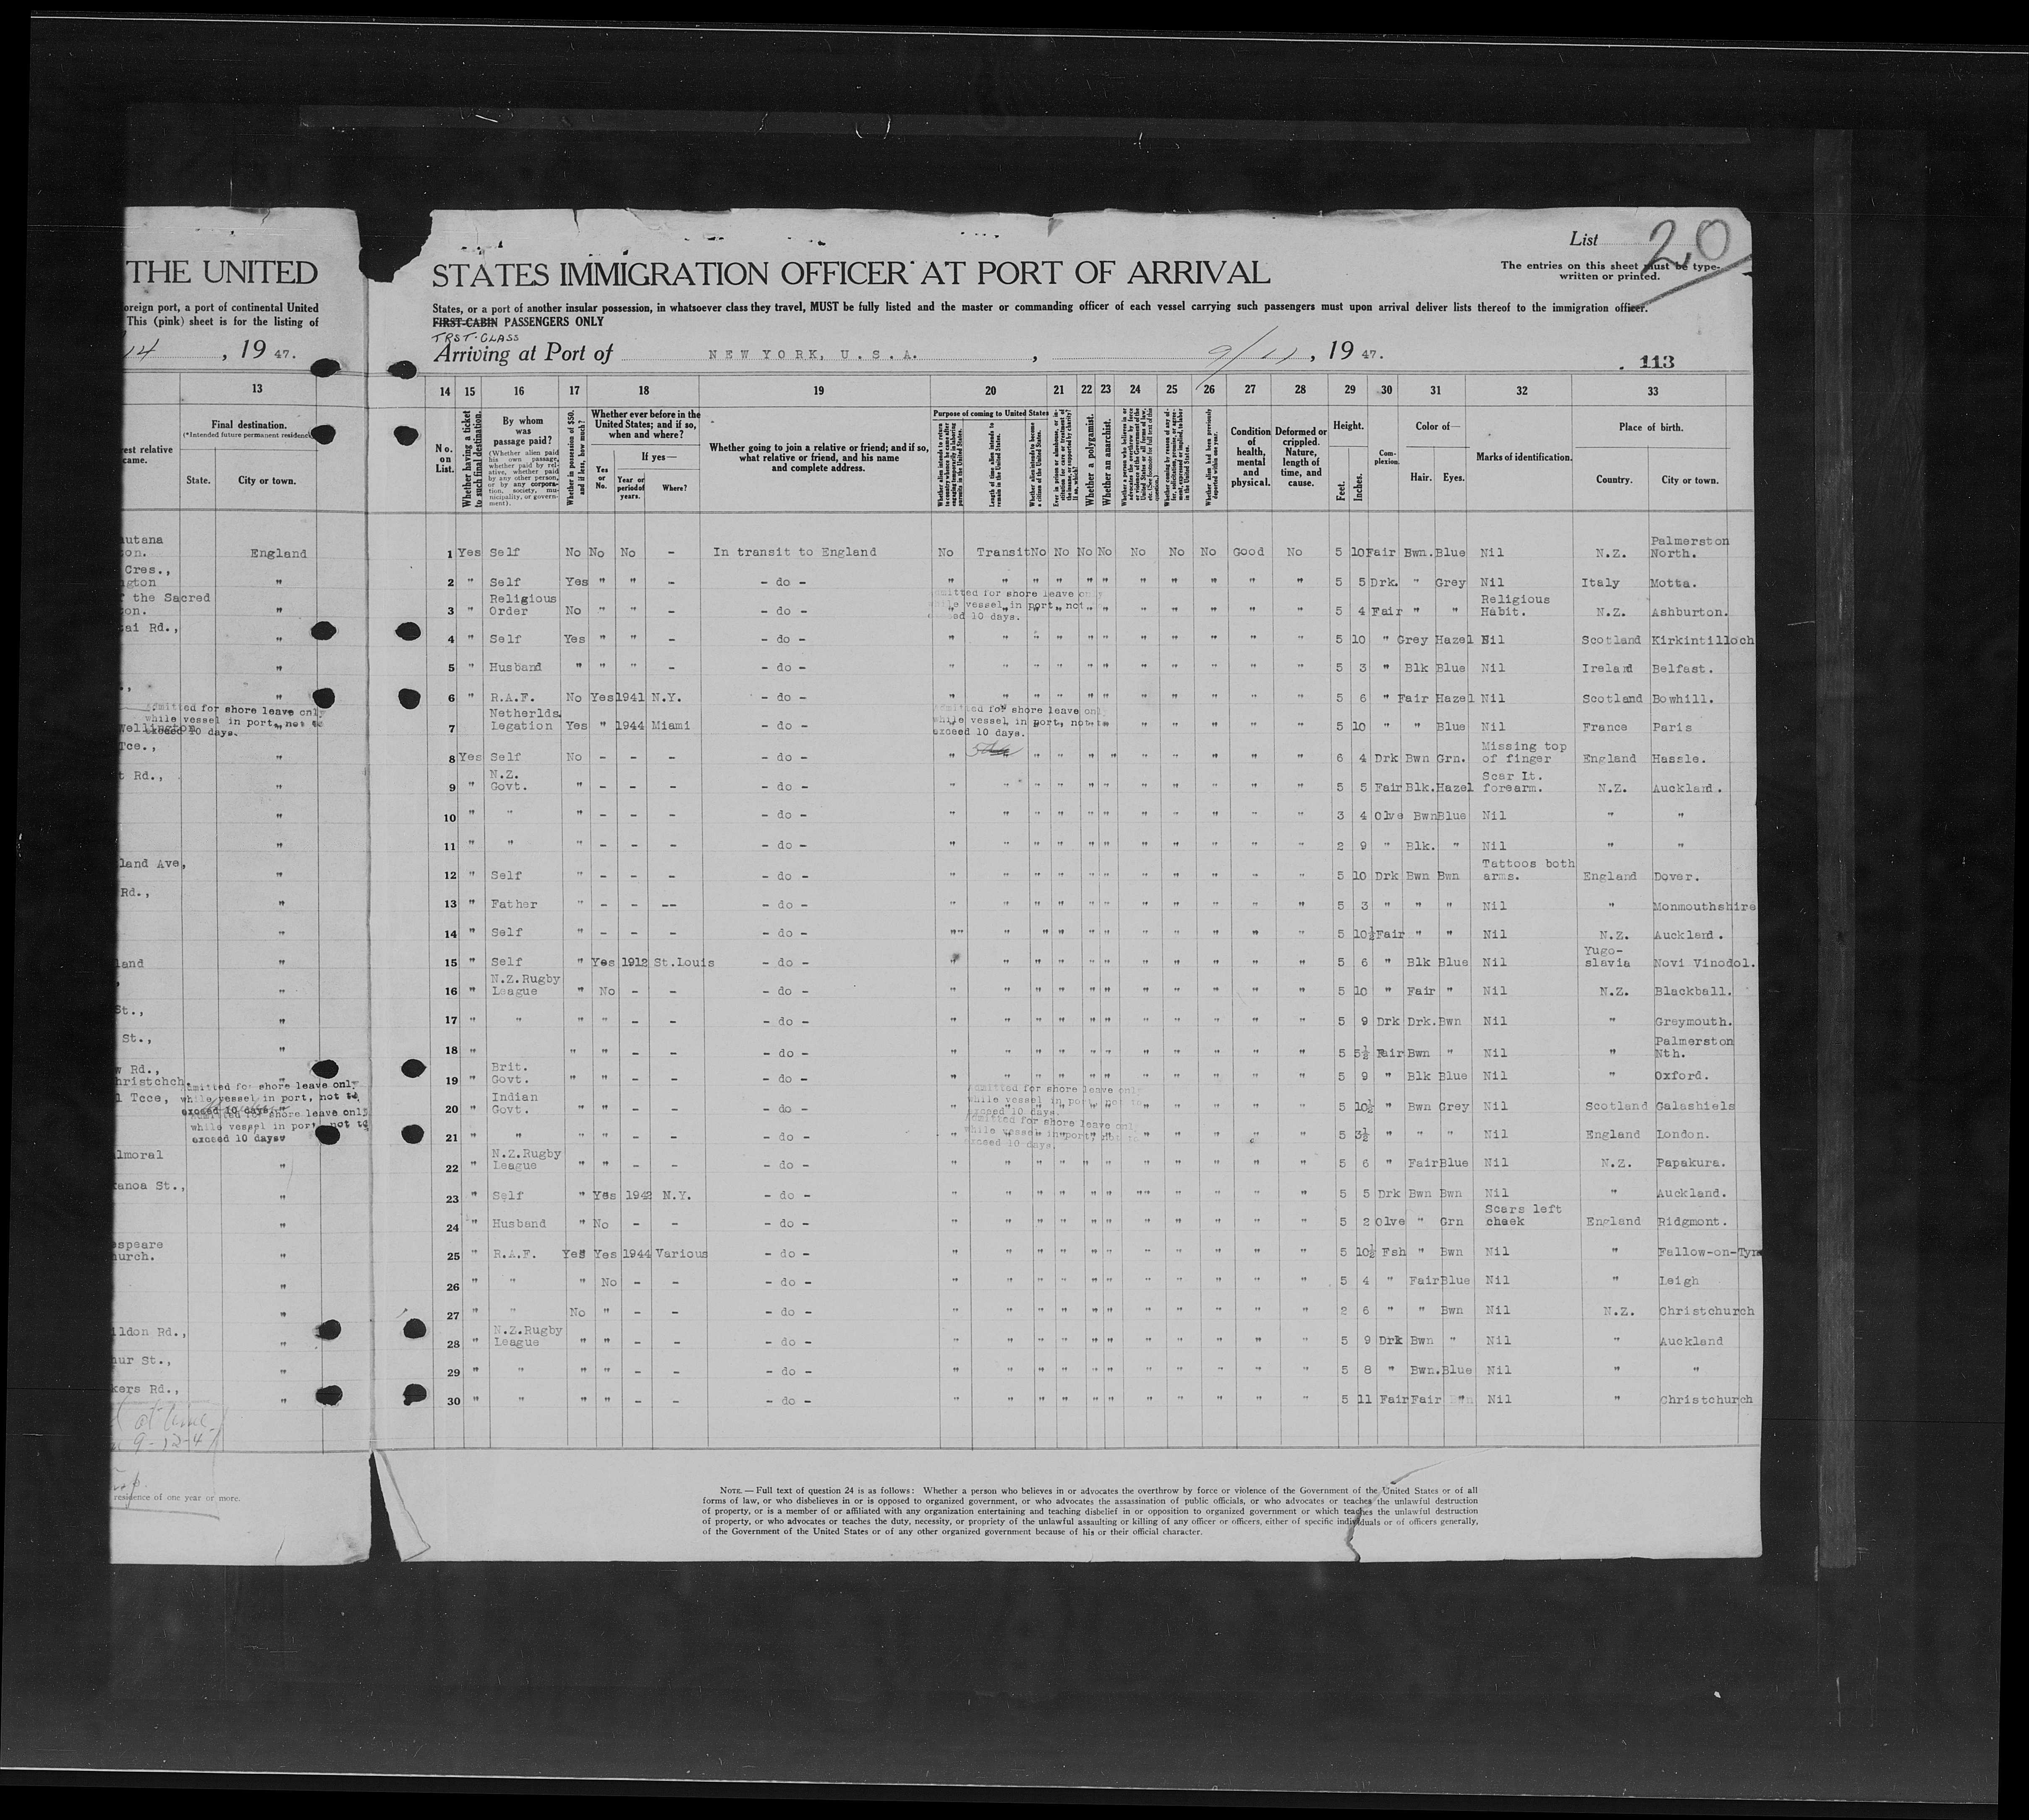 List 20
THE UNITED STATES IMMIGRATION OFFICER AT PORT OF ARRIVAL
The entries on this sheet must be type-
written or printed.
oreign port, a port of continental United States, or a port of another insular possession, in whatsoever class they travel, MUST be fully listed and the master or commanding officer of each vessel carrying such passengers must upon arrival deliver lists thereof to the immigration officer.
This (pink) sheet is for the listing of FIRST-CABIN PASSENGERS ONLY
TRST. CLASS
14, 19 47. Arriving at Port of NEW YORK, U.S.A., 9/11, 19 47.
113
13 14 15 16 17 18 19 20 21 22 23 24 25 26 27 28 29 30 31 32 33
Final destination.
(*Intended future permanent residence)
State. City or town.
No. on List.
Whether having a ticket to such final destination.
By whom was passage paid?
(Whether alien paid his own passage, whether paid by relative, whether paid by any other person, or by any corporation, society, municipality, or government).
Whether in possession of $50. and if less, how much?
Whether ever before in the United States; and if so, when and where?
Yes or No. If yes— Year or period of years. Where?
Whether going to join a relative or friend; and if so, what relative or friend, and his name and complete address.
Purpose of coming to United States
Length of time alien intends to remain in the United States.
Whether alien intends to become a citizen of the United States.
Whether a polygamist.
Whether an anarchist.
Condition of health, mental and physical.
Deformed or crippled. Nature, length of time, and cause.
Height. Feet. Inches.
Complexion.
Color of— Hair. Eyes.
Marks of identification.
Place of birth. Country. City or town.
England 1 Yes Self No No No - In transit to England No Transit No No No No No No No Good No 5 10 Fair Bwn. Blue Nil N.Z. Palmerston North.
" 2 " Self Yes " " - - do - " " " " " " " " " " " 5 5 Drk. " Grey Nil Italy Motta.
" 3 " Religious Order No " " - - do - " " " " " " " " " " " 5 4 Fair " " Religious Habit. N.Z. Ashburton.
Admitted for shore leave only
while vessel in port, not to
exceed 10 days.
" 4 " Self Yes " " - - do - " " " " " " " " " " " 5 10 " Grey Hazel Nil Scotland Kirkintilloch
" 5 " Husband " " " - - do - " " " " " " " " " " " 5 3 " Blk Blue Nil Ireland Belfast.
" 6 " R.A.F. No Yes 1941 N.Y. - do - " " " " " " " " " " " 5 6 " Fair Hazel Nil Scotland Bowhill.
Admitted for shore leave only
while vessel in port, not to
exceed 10 days.
Wellington " 7 Netherlds. Legation Yes " 1944 Miami - do - " " " " " " " 5 10 " " Blue Nil France Paris
Admitted for shore leave only
while vessel in port, not to
exceed 10 days.
" 8 Yes Self No - - - - do - " " " " " " " " " " " 6 4 Drk Bwn Grn. Missing top of finger England Hassle.
" 9 " N.Z. Govt. " - - - - do - " " " " " " " " " " " 5 5 Fair Blk. Hazel Scar Lt. forearm. N.Z. Auckland.
" 10 " " " - - - - do - " " " " " " " " " " " 3 4 Olve Bwn Blue Nil " "
" 11 " " " - - - - do - " " " " " " " " " " " 2 9 " Blk. " Nil " "
" 12 " Self " - - - - do - " " " " " " " " " " " 5 10 Drk Bwn Bwn Tattoos both arms. England Dover.
" 13 " Father " - - -- - do - " " " " " " " " " " " 5 3 " " " Nil " Monmouthshire
" 14 " Self " - - - - do - "" " " " " " " " " " 5 10½ Fair " " Nil N.Z. Auckland.
" 15 " Self " Yes 1912 St.Louis - do - " " " " " " " " " " " 5 6 " Blk Blue Nil Yugo-slavia Novi Vinodol.
" 16 " N.Z.Rugby League " No - - - do - " " " " " " " " " " " 5 10 " Fair " Nil N.Z. Blackball.
" 17 " " " " - - - do - " " " " " " " " " " " 5 9 Drk Drk. Bwn Nil " Greymouth.
" 18 " " " - - - do - " " " " " " " " " " " 5 5½ Fair Bwn " Nil " Palmerston Nth.
" 19 " Brit. Govt. " " - - - do - " " " " " " " " " " " 5 9 " Blk Blue Nil " Oxford.
Admitted for shore leave only
while vessel in port, not to
exceed 10 days.
" 20 " Indian Govt. " " - - - do - " " " " " " " " " " " 5 10½ " Bwn Grey Nil Scotland Galashiels
Admitted for shore leave only
while vessel in port, not to
exceed 10 days
21 " " " " - - - do - " " " " " " " " " " " 5 3½ " " " Nil England London.
" 22 " N.Z.Rugby League " " - - - do - " " " " " " " " " " " 5 6 " Fair Blue Nil N.Z. Papakura.
" 23 " Self " Yes 1942 N.Y. - do - " " " " " "" " " " " 5 5 Drk Bwn Bwn Nil " Auckland.
" 24 " Husband " No - - - do - " " " " " " " " " " " 5 2 Olve " Grn Scars left cheek England Ridgmont.
" 25 " R.A.F. Yes Yes 1944 Various - do - " " " " " " " " " " " 5 10½ Fsh " Bwn Nil " Fallow-on-Tyne
" 26 " " No - - - do - " " " " " " " " " " " 5 4 " Fair Blue Nil " Leigh
" 27 " " No " - - - do - " " " " " " " " " " " 2 6 " " Bwn Nil N.Z. Christchurch
" 28 " N.Z.Rugby League " " - - - do - " " " " " " " " " " " 5 9 Drk Bwn " Nil " Auckland
" 29 " " " " - - - do - " " " " " " " " " " " 5 8 " Bwn. Blue Nil " "
" 30 " " " " - - - do - " " " " " " " " " " " 5 11 Fair Fair " Nil " Christchurch
9-12-47
residence of one year or more.
NOTE.—Full text of question 24 is as follows: Whether a person who believes in or advocates the overthrow by force or violence of the Government of the United States or of all
forms of law, or who disbelieves in or is opposed to organized government, or who advocates the assassination of public officials, or who advocates or teaches the unlawful destruction
of property, or is a member of or affiliated with any organization entertaining and teaching disbelief in or opposition to organized government or which teaches the unlawful destruction
of property, or who advocates or teaches the duty, necessity, or propriety of the unlawful assaulting or killing of any officer or officers, either of specific individuals or of officers generally,
of the Government of the United States or of any other organized government because of his or their official character.